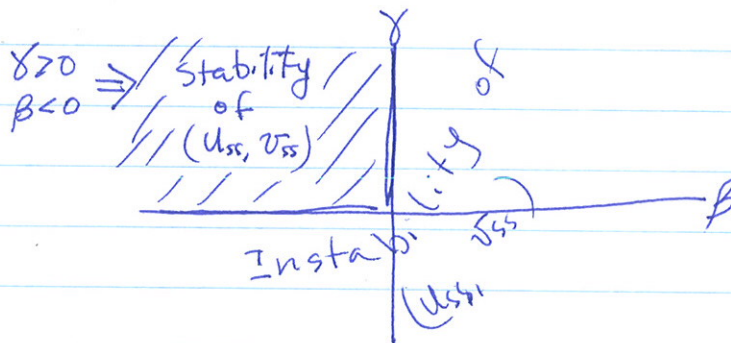 γ
γ>0 ⇒ Stability
β<0 of
(u_ss, v_ss)
β
Instability
of
(u_ss, v_ss)